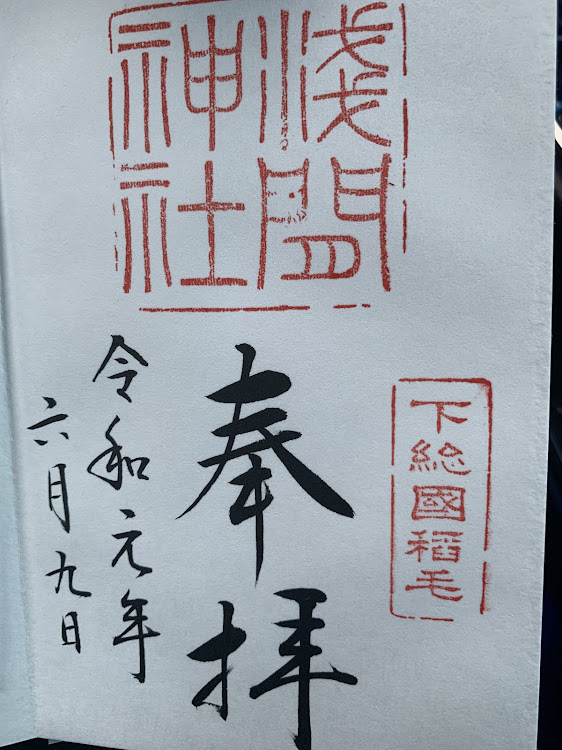 浅間
神社
下総國稲毛
奉拝
令和元年
六月九日